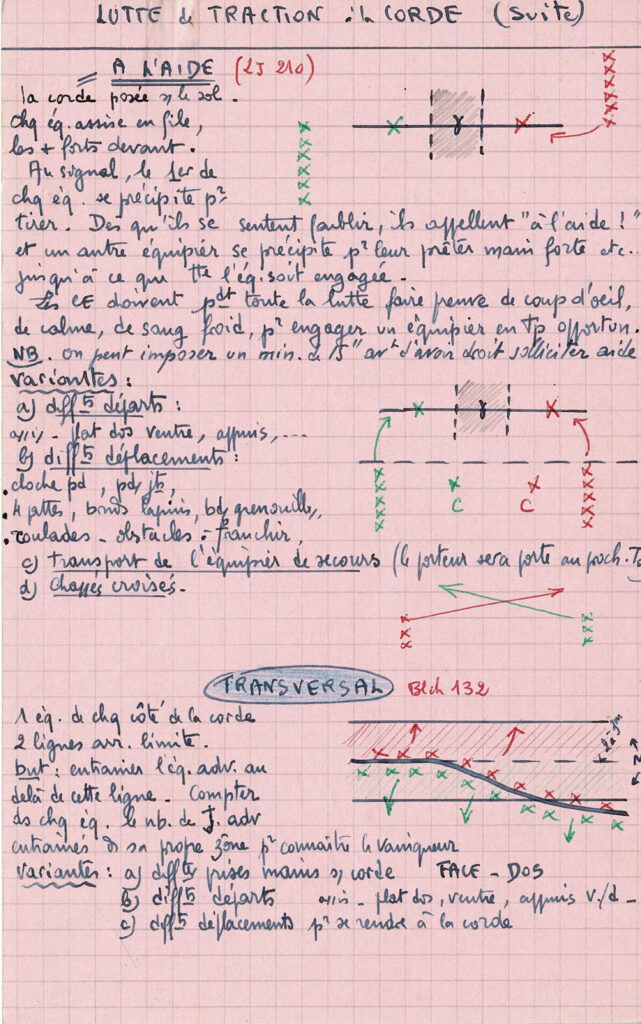 LUTTE de TRACTION à la CORDE (Suite)
= A L'AIDE (LJ 210)
la corde posée s/ le sol.
chq éq. assise en file,
les + forts devant.
Au signal, le 1er de
chq éq. se précipite pr
tirer. Dès qu'ils se sentent faiblir, ils appellent "à l'aide !"
et un autre équipier se précipite pr leur prêter main forte etc..
jusqu'à ce que tte l'éq. soit engagée.
Les CE doivent pdt toute la lutte faire preuve de coup d'oeil,
de calme, de sang froid, pr engager un équipier en Tp opportun.
NB. on peut imposer un min. de 15" avt d'avoir droit solliciter aide
Variantes :
a) difftS départs :
assis - plat dos ventre, appuis, ....
b) difftS déplacements :
cloche pd, pds jts,
4 pattes, bonds lapins, bds grenouilles,
roulades - obstacles à franchir,
C C
c) transport de l'équipier de secours (le porteur sera porté au proch. T
d) Chassés croisés.
TRANSVERSAL Blch 132
1 éq. de chq côté de la corde
2 lignes arr. limite.
but : entrainer l'éq. adv. au
delà de cette ligne. Compter
ds chq éq. le nb. de J. adv
entrainés ds sa propre zône pr connaître le vainqueur
Variantes : a) difftes prises mains s/ corde FACE - DOS
b) difftS départs assis - plat dos, ventre, appuis v./d -
c) difftS déplacements pr se rendre à la corde